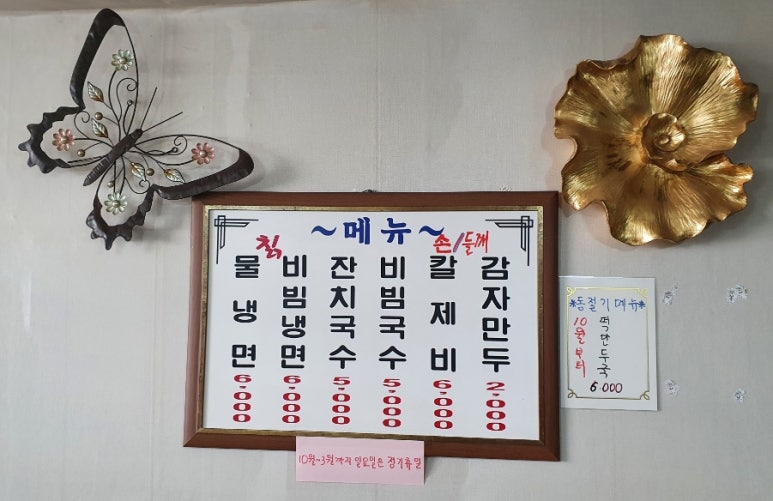 ~메뉴~
칡
손/들깨
물냉면 6.000
비빔냉면 6.000
잔치국수 5.000
비빔국수 5.000
칼제비 6.000
감자만두 2.000
*동절기메뉴*
10월부터
떡만두국
6.000
10월~3월까지 일요일은 정기휴일